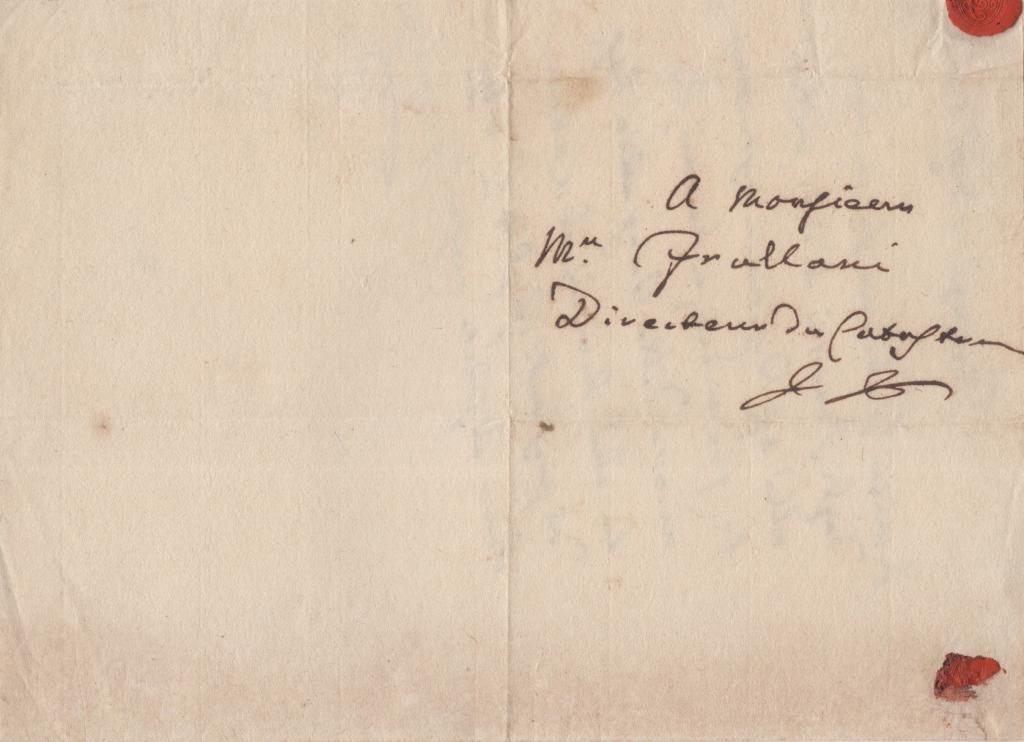 A Monsieur
Mr. Frullani
Directeur du Catastre